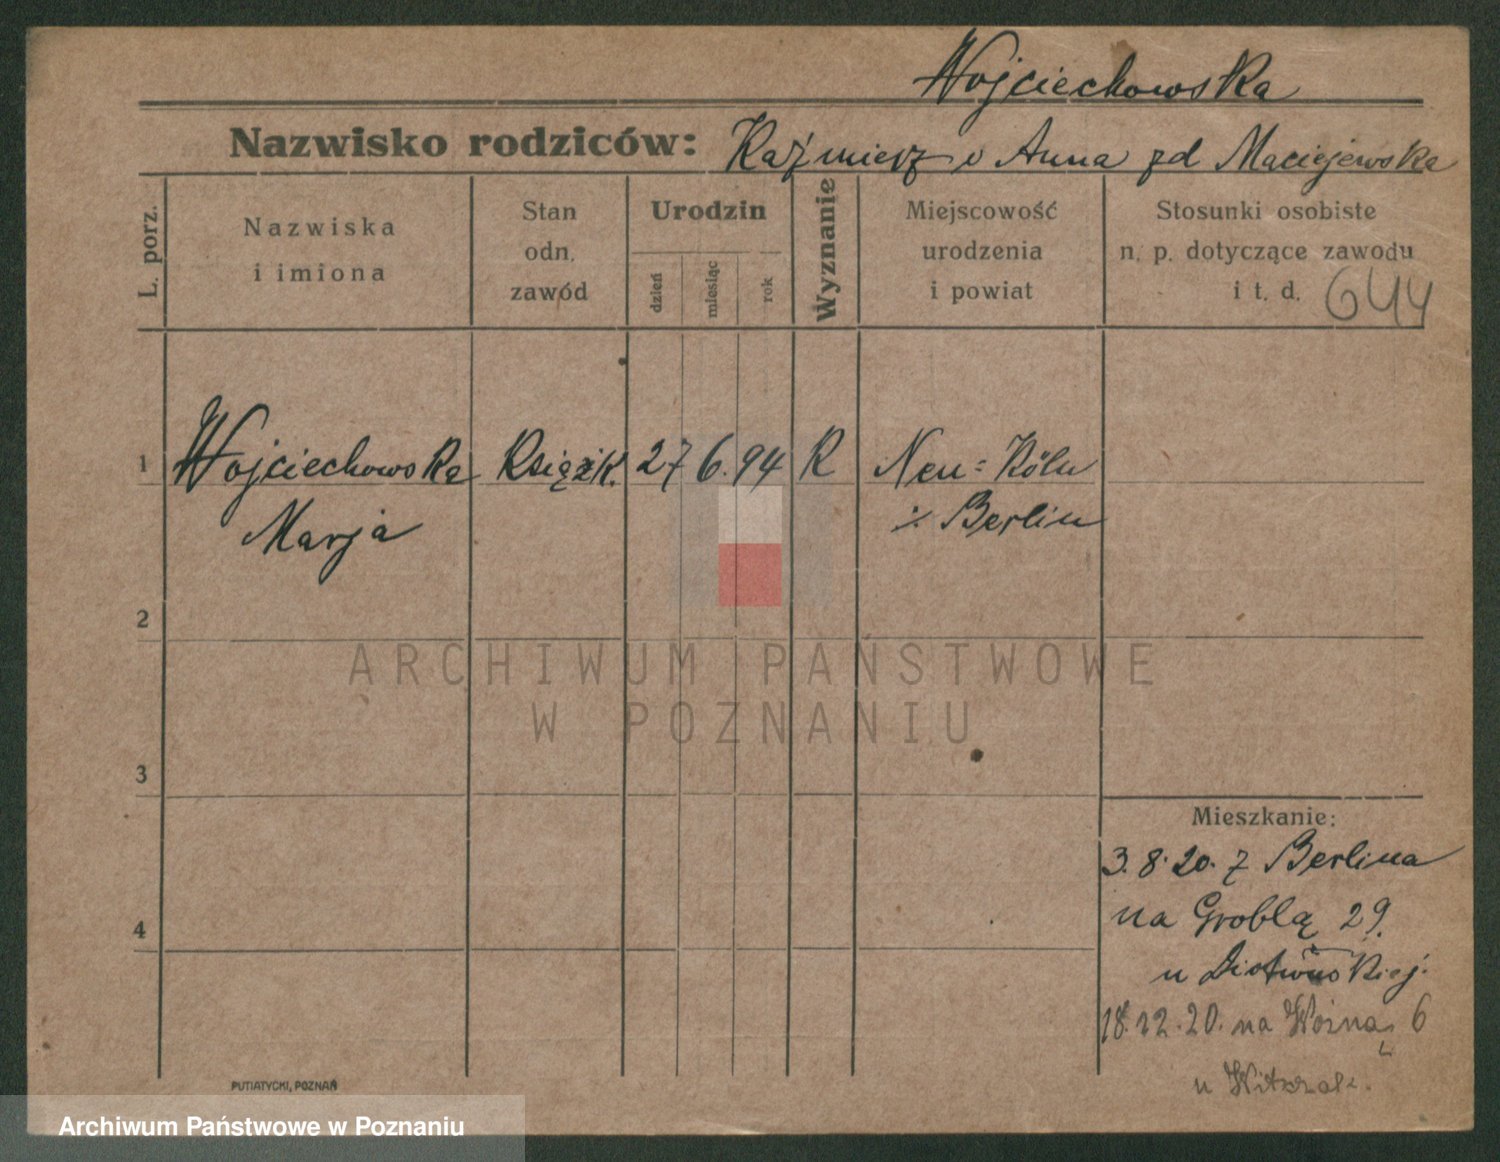 Wojciechowska
Nazwisko rodziców: Kaźmierz i Anna zd Maciejewska
L. porz.
Nazwiska
i imiona
Stan
odn.
zawód
Urodzin
dzień
miesiąc
rok
Wyznanie
Miejscowość
urodzenia
i powiat
Stosunki osobiste
n. p. dotyczące zawodu
i t. d. 644
1 Wojciechowska Książk. 27 6. 94 R Neu-Köln
Marja Berlin
2
ARCHIWUM PAŃSTWOWE
W POZNANIU
3
Mieszkanie:
3. 8. 20. z Berlina
4 na Groblą 29.
u
18.12.20. na Woźną 6
u
PUTIATYCKI, POZNAŃ
Archiwum Państwowe w Poznaniu